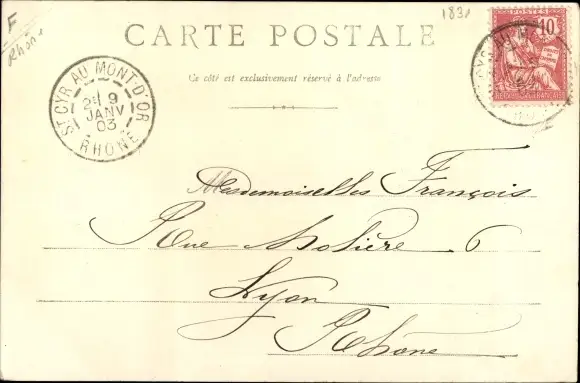 F
Rhône
1831
CARTE POSTALE
Ce côté est exclusivement réservé à l'adresse
POSTES
10
RÉPUBLIQUE FRANÇAISE
ST CYR AU MONT-D'OR
2E 9
JANV
03
RHÔNE
Mesdemoiselles François
Rue Molière 6
Lyon
Rhône